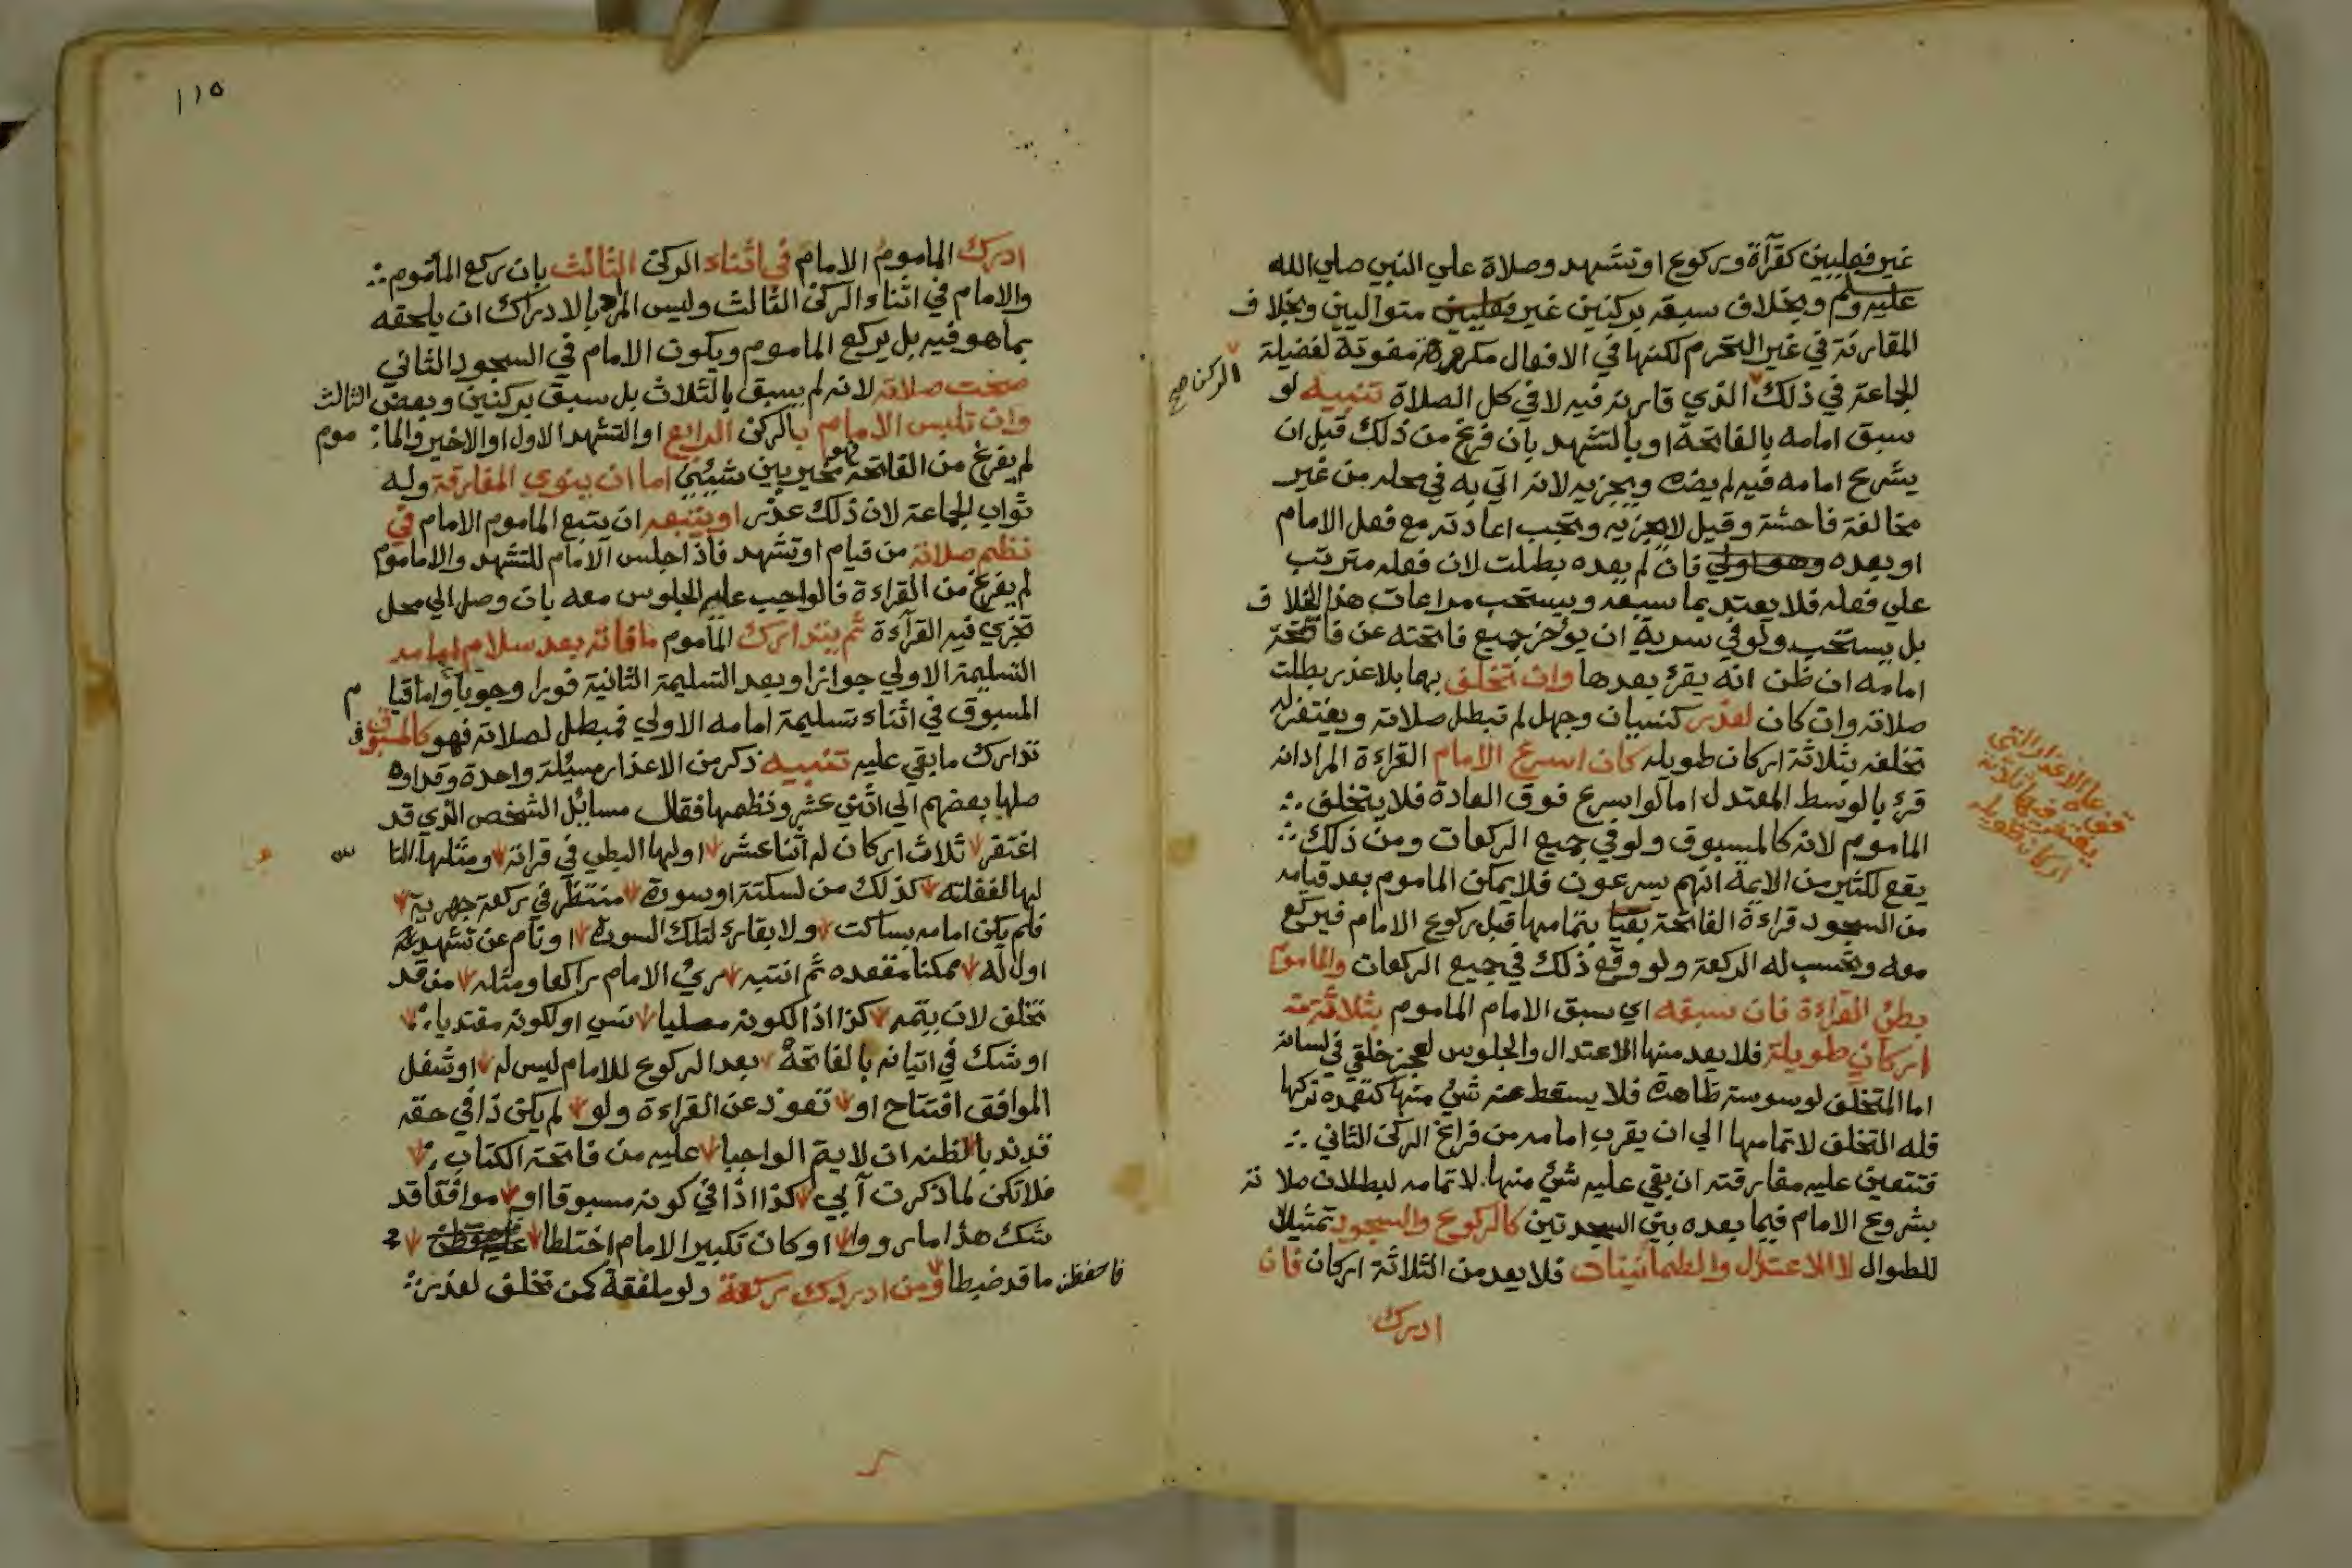 غير فعليين كقرآة وركوع او تشهد وصلاة علي النبي صلي الله
عليه وسلم وبخلاف سبقه بركنين غير فعليين متواليين وبخلاف
المقارنة في غير التحرم لكنها في الافعال مكروهة مفوتة لفضيلة
الجماعة في ذلك الذي قارنه فيه لا في كل الصلاة تنبيه لو
الركن صح
سبق امامه بالفاتحة او بالتشهد بان فرغ من ذلك قبل ان
يشرع امامه فيه لم يضره ويجزيه لانه اتي به في محله من غير
مخالفة فاحشة وقيل لا يجزيه وتجب اعادته مع فعل الامام
او بعده وهو اولي فان لم يعده بطلت لان فعله مترتب
علي فعله فلا يعتد بما سبقه ويستحب مراعات هذا الخلاف
بل يستحب ولو في سرية ان يؤخر جميع فاتحته عن فاتحة
امامه ان ظن انه يقرئ بعدها وان تخلف بهما بلا عذر بطلت
صلاته وان كان لعذر كنسيان وجهل لم تبطل صلاته ويغتفر له
تخلفه بثلاثة اركان طويله كان اسرع الامام القراءة المراد انه
قرئ بالوسط المعتدل اما لو اسرع فوق العادة فلا يتخلف
الماموم لانه كالمسبوق ولو في جميع الركعات ومن ذلك
يقع لكثير من الايمة انهم يسرعون فلا يمكن الماموم بعد قيامه
من السجود قراءة الفاتحة بتمامها قبل ركوع الامام فيركع
معه وتحسب له الركعة ولو وقع ذلك في جميع الركعات والماموم
بطئ القراءة فان سبقه اي سبق الامام الماموم بثلاثة
اركان طويلة فلا يعد منها الاعتدال والجلوس لعجز خلقي في لسانه
اما المتخلف لوسوسة ظاهرة فلا يسقط عنه شئ منها كتعمده تركها
فله التخلف لاتمامها الي ان يقرب امامه من فراغ الركن الثاني
فتتعين عليه مفارقته ان بقي عليه شئ منها لاتمامه لبطلان صلاته
بشروع الامام فيما بعده بين السجدتين كالركوع والسجود تمثيلا
للطوال لا الاعتدال والطمأنينات فلا يعد من الثلاثة اركان فان
ادرك
١١٥
ادرك الماموم الامام في اثناء الركن الثالث بان ركع المأموم
والامام في اثناء الركن الثالث وليس المراد بالادراك ان يلحقه
بما هو فيه بل يركع الماموم ويكون الامام في السجود الثاني
صحت صلاته لانه لم يسبق بالثلاث بل سبق بركنين وبعض الثالث
وان تلبس الامام بالركن الرابع او التشهد الاول او الاخير والماموم
لم يفرغ من الفاتحة فهو مخير بين شيئين اما ان ينوي المفارقة وله
ثواب الجماعة لان ذلك عذر او يتبعه ان يتبع الماموم الامام في
نظم صلاته من قيام او تشهد فاذا جلس الامام للتشهد والاماموم
لم يفرغ من القراءة فالواجب عليه الجلوس معه بان وصل الي محل
تجزي فيه القرآءة ثم يتدارك المأموم ما فاته بعد سلام امامه
التسليمة الاولي جوازا وبعد التسليمة الثانية فورا وجوبا واما قيام
المسبوق في اثناء تسليمة امامه الاولي فمبطل لصلاته فهو كالمسبوق في
تدارك ما بقي عليه تنبيه ذكر من الاعذار مسئلة واحدة وقد او
صلها بعضهم الي اثني عشر ونظمها فقال مسائل الشخص الذي قد
اغتفر ثلاث اركان له اثنا عشر اولها البطئ في قراته ومثلها الناس
لها لغفلته كذلك من لسكتة او سورة منتظر في ركعة جهرية
فلم يكن امامه بساكت ولا بقارئ لتلك السورة او نام عن تشهد
اول له ممكنا مقعده ثم انتبه رئي الامام راكعا ومثله من قد
تخلف لان يتمه كذا اذا لكونه مصليا نسي او لكونه مقتديا
او شك في اتيانه بالفاتحة بعد الركوع للامام ليس له او شغل
الموافق افتتاح او تعوذ عن القراءة ولو لم يكن ذا في حقه
قد ندبا لظنه ان لا يتم الواجبا عليه من فاتحة الكتاب
فلا تكن لما ذكرت آبي كذا اذا في كونه مسبوقا او موافقا قد
شك هذا ما رووا او كان تكبير الامام اختلطا عليه
فاحفظن ما قد ضبطا ومن ادرك ركعة ولو ملفقة كمن تخلف لعذر